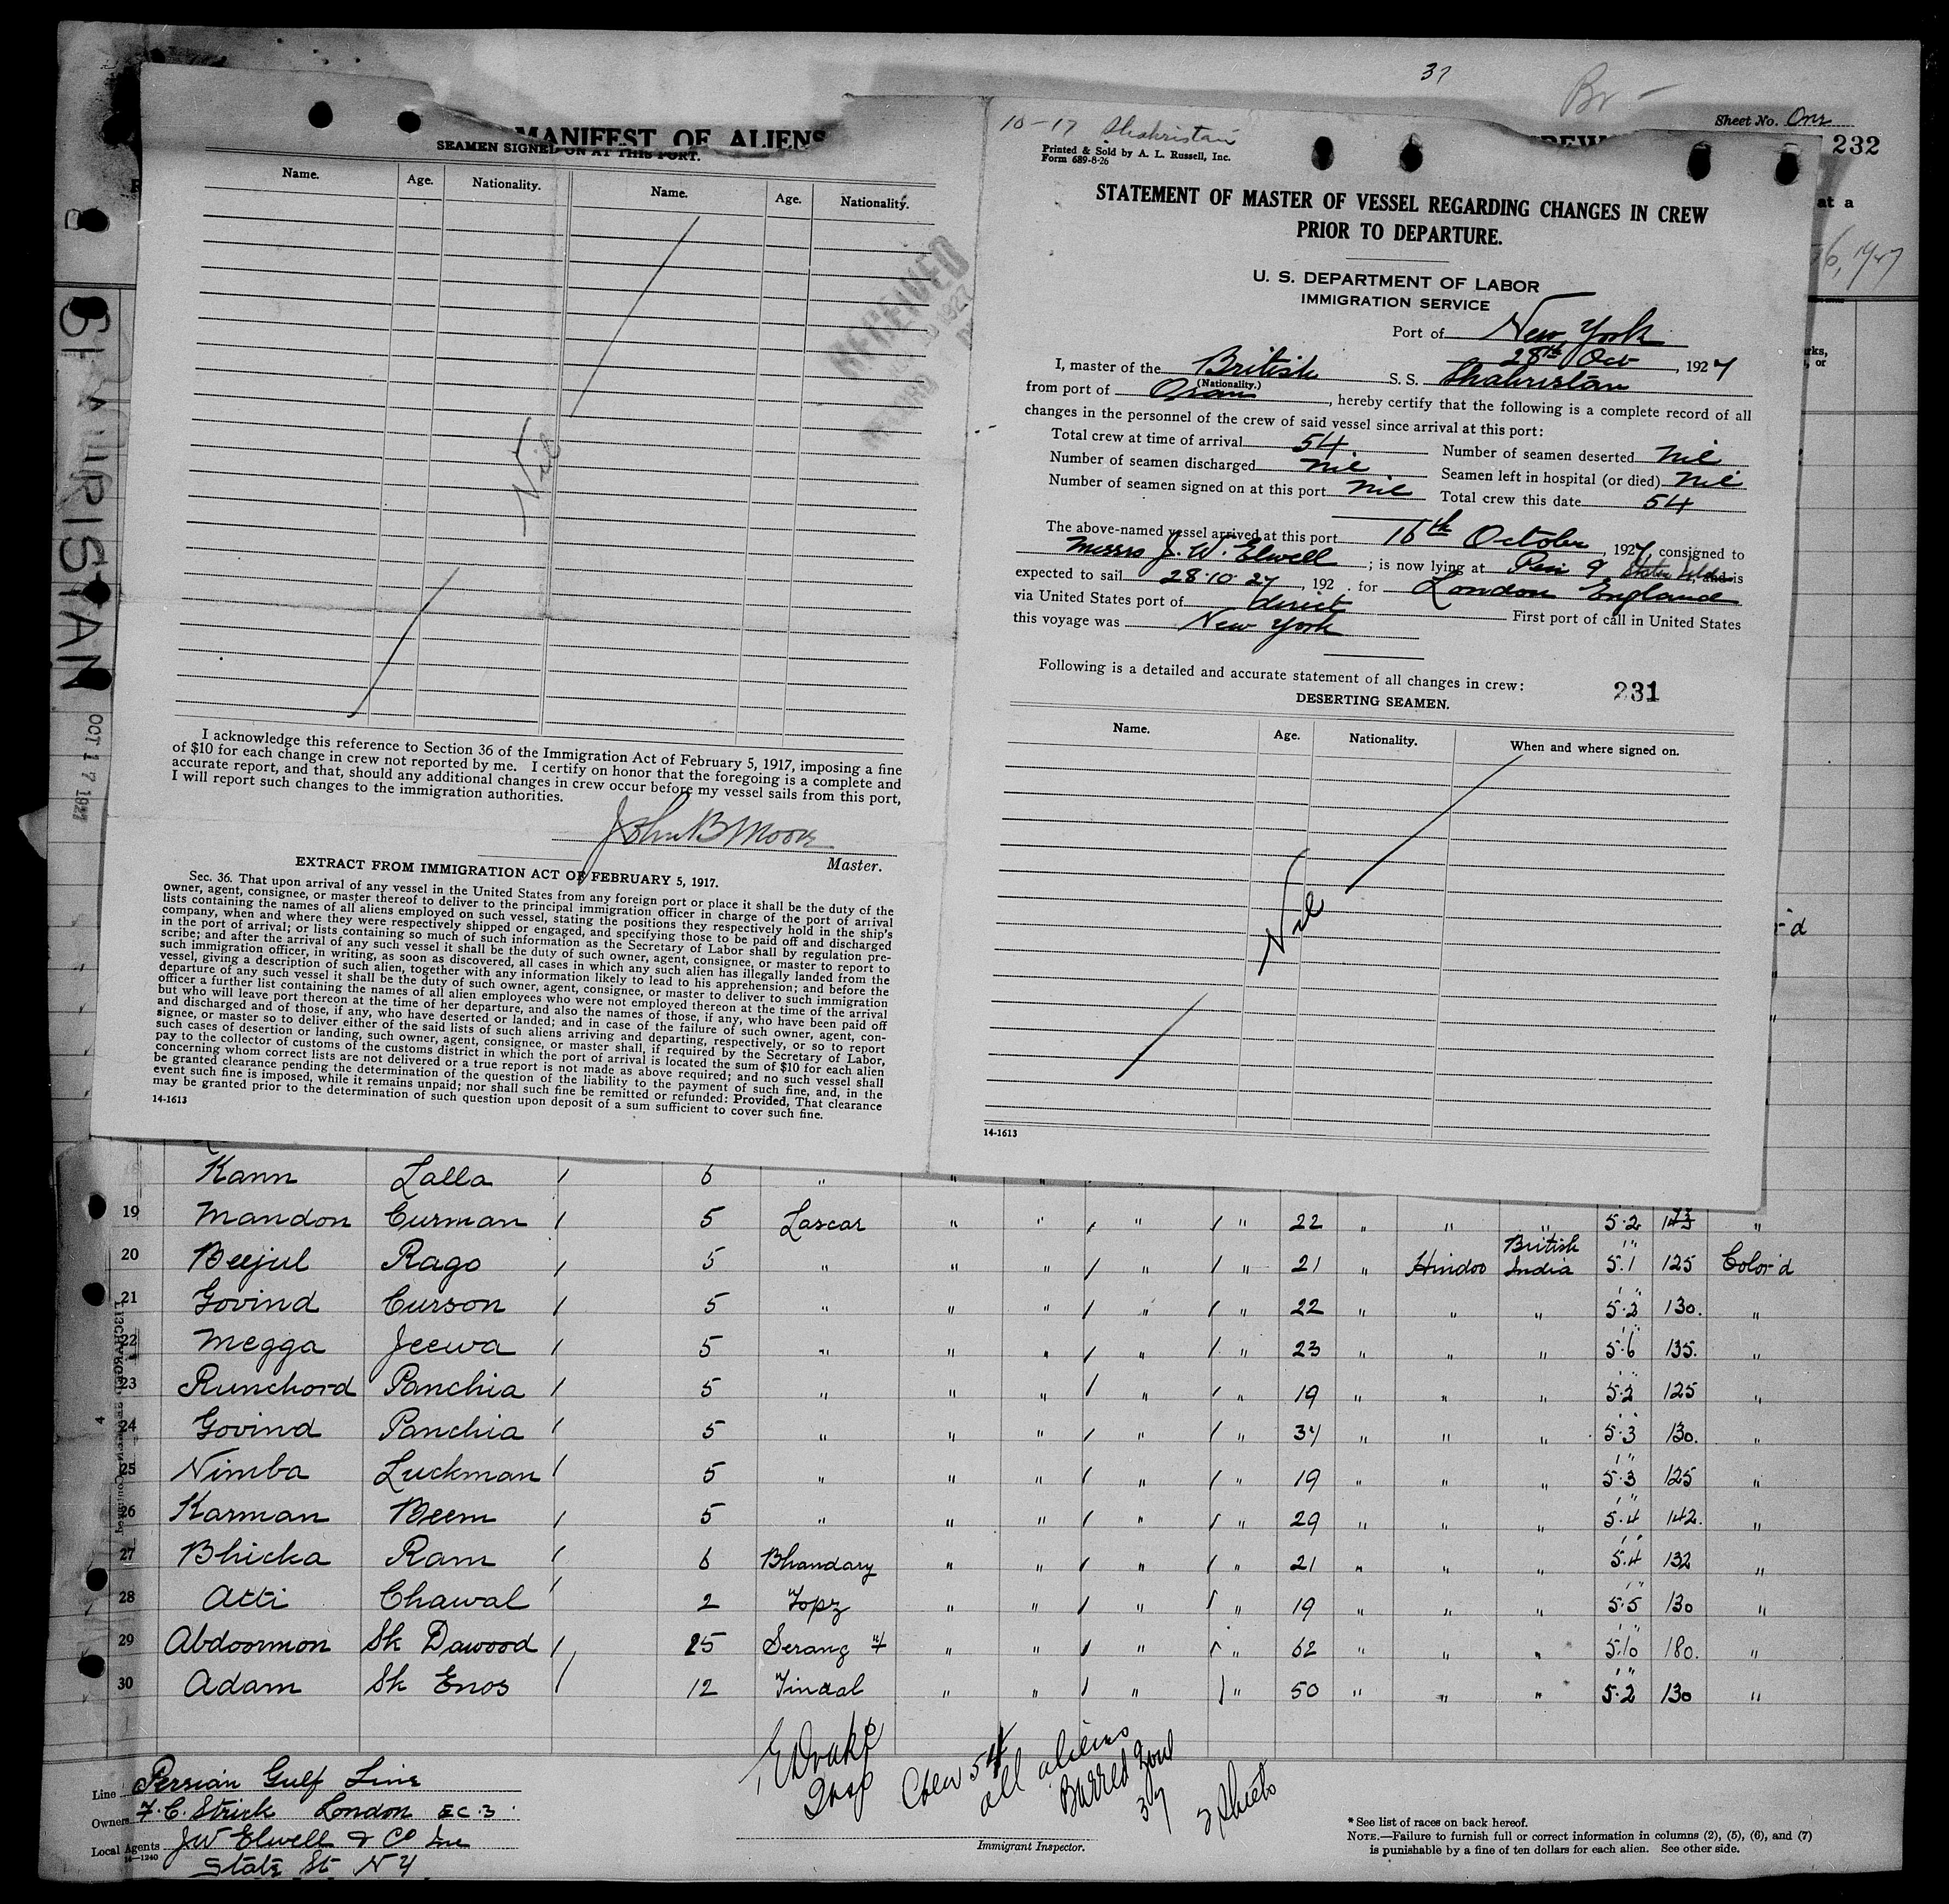 37
Br -
Sheet No. One
MANIFEST OF ALIENS
232
at a
6, 1927
SEAMEN SIGNED ON AT THIS PORT.
Name. Age. Nationality. Name. Age. Nationality.
RECEIVED
1927
RECORD
Nil
I acknowledge this reference to Section 36 of the Immigration Act of February 5, 1917, imposing a fine
of $10 for each change in crew not reported by me. I certify on honor that the foregoing is a complete and
accurate report, and that, should any additional changes in crew occur before my vessel sails from this port,
I will report such changes to the immigration authorities.
John B Moore
Master.
EXTRACT FROM IMMIGRATION ACT OF FEBRUARY 5, 1917.
Sec. 36. That upon arrival of any vessel in the United States from any foreign port or place it shall be the duty of the
owner, agent, consignee, or master thereof to deliver to the principal immigration officer in charge of the port of arrival
lists containing the names of all aliens employed on such vessel, stating the positions they respectively hold in the ship's
company, when and where they were respectively shipped or engaged, and specifying those to be paid off and discharged
in the port of arrival; or lists containing so much of such information as the Secretary of Labor shall by regulation pre-
scribe; and after the arrival of any such vessel it shall be the duty of such owner, agent, consignee, or master to report to
such immigration officer, in writing, as soon as discovered, all cases in which any such alien has illegally landed from the
vessel, giving a description of such alien, together with any information likely to lead to his apprehension; and before the
departure of any such vessel it shall be the duty of such owner, agent, consignee, or master to deliver to such immigration
officer a further list containing the names of all alien employees who were not employed thereon at the time of the arrival
but who will leave port thereon at the time of her departure, and also the names of those, if any, who have been paid off
and discharged and of those, if any, who have deserted or landed; and in case of the failure of such owner, agent, con-
signee, or master so to deliver either of the said lists of such aliens arriving and departing, respectively, or so to report
such cases of desertion or landing, such owner, agent, consignee, or master shall, if required by the Secretary of Labor,
pay to the collector of customs of the customs district in which the port of arrival is located the sum of $10 for each alien
concerning whom correct lists are not delivered or a true report is not made as above required; and no such vessel shall
be granted clearance pending the determination of the question of the liability to the payment of such fine, and, in the
event such fine is imposed, while it remains unpaid; nor shall such fine be remitted or refunded: Provided, That clearance
may be granted prior to the determination of such question upon deposit of a sum sufficient to cover such fine.
14-1613
10-17 Shahristan
Printed & Sold by A. L. Russell, Inc.
Form 689-8-26
STATEMENT OF MASTER OF VESSEL REGARDING CHANGES IN CREW
PRIOR TO DEPARTURE.
U. S. DEPARTMENT OF LABOR
IMMIGRATION SERVICE
Port of New York
28th Oct, 1927
I, master of the British S. S. Shahristan
(Nationality.)
from port of Oran, hereby certify that the following is a complete record of all
changes in the personnel of the crew of said vessel since arrival at this port:
Total crew at time of arrival 54 Number of seamen deserted nil
Number of seamen discharged nil Seamen left in hospital (or died) nil
Number of seamen signed on at this port nil Total crew this date 54
The above-named vessel arrived at this port 16th October, 1927, consigned to
Messrs J. W. Elwell; is now lying at Pier 9 and is
expected to sail 28.10.27, 192 . for London England
via United States port of direct First port of call in United States
this voyage was New York
Following is a detailed and accurate statement of all changes in crew:
231
DESERTING SEAMEN.
Name. Age. Nationality. When and where signed on.
Nil
14-1613
SHAHRISTAN
OCT 17 1927
Kann Lalla / 6 "
19 Mandon Curman / 5 Lascar " " / " / " 22 " " " 5.2 "
20 Beejul Rago / 5 " " " / " / " 21 " Hindoo British India 5.1 125 Color'd
21 Govind Curson / 5 " " " / " / " 22 " " " 5.2 130. "
22 Megga Jeewa / 5 " " " / " / " 23 " " " 5.6 135. "
23 Runchord Panchia / 5 " " " / " / " 19 " " " 5.2 125 "
24 Govind Panchia / 5 " " " / " / " 34 " " " 5.3 130. "
25 Nimba Luckman / 5 " " " / " / " 19 " " " 5.3 125 "
26 Karman Beem / 5 " " " / " / " 29 " " " 5.4 142. "
27 Bhicka Ram / 6 Bhandary " " / " / " 21 " " " 5.4 132 "
28 Atti Chawal / 2 Topz " " / " / " 19 " " " 5.5 130 "
29 Abdoormon Sk Dawood / 25 Serang " " / " / " 62 " " " 5.10 180. "
30 Adam Sk Enos / 12 Tindal " " / " / " 50 " " " 5.2 130 "
E Drake
Insp
Crew 54
all aliens
Barred Zone
37
2 Sheets
Line Persian Gulf Line
Owners F. C. Strick London E C.3.
Local Agents J W Elwell & Co Inc
14-1240
State St N Y
Immigrant Inspector.
* See list of races on back hereof.
NOTE.—Failure to furnish full or correct information in columns (2), (5), (6), and (7)
is punishable by a fine of ten dollars for each alien. See other side.